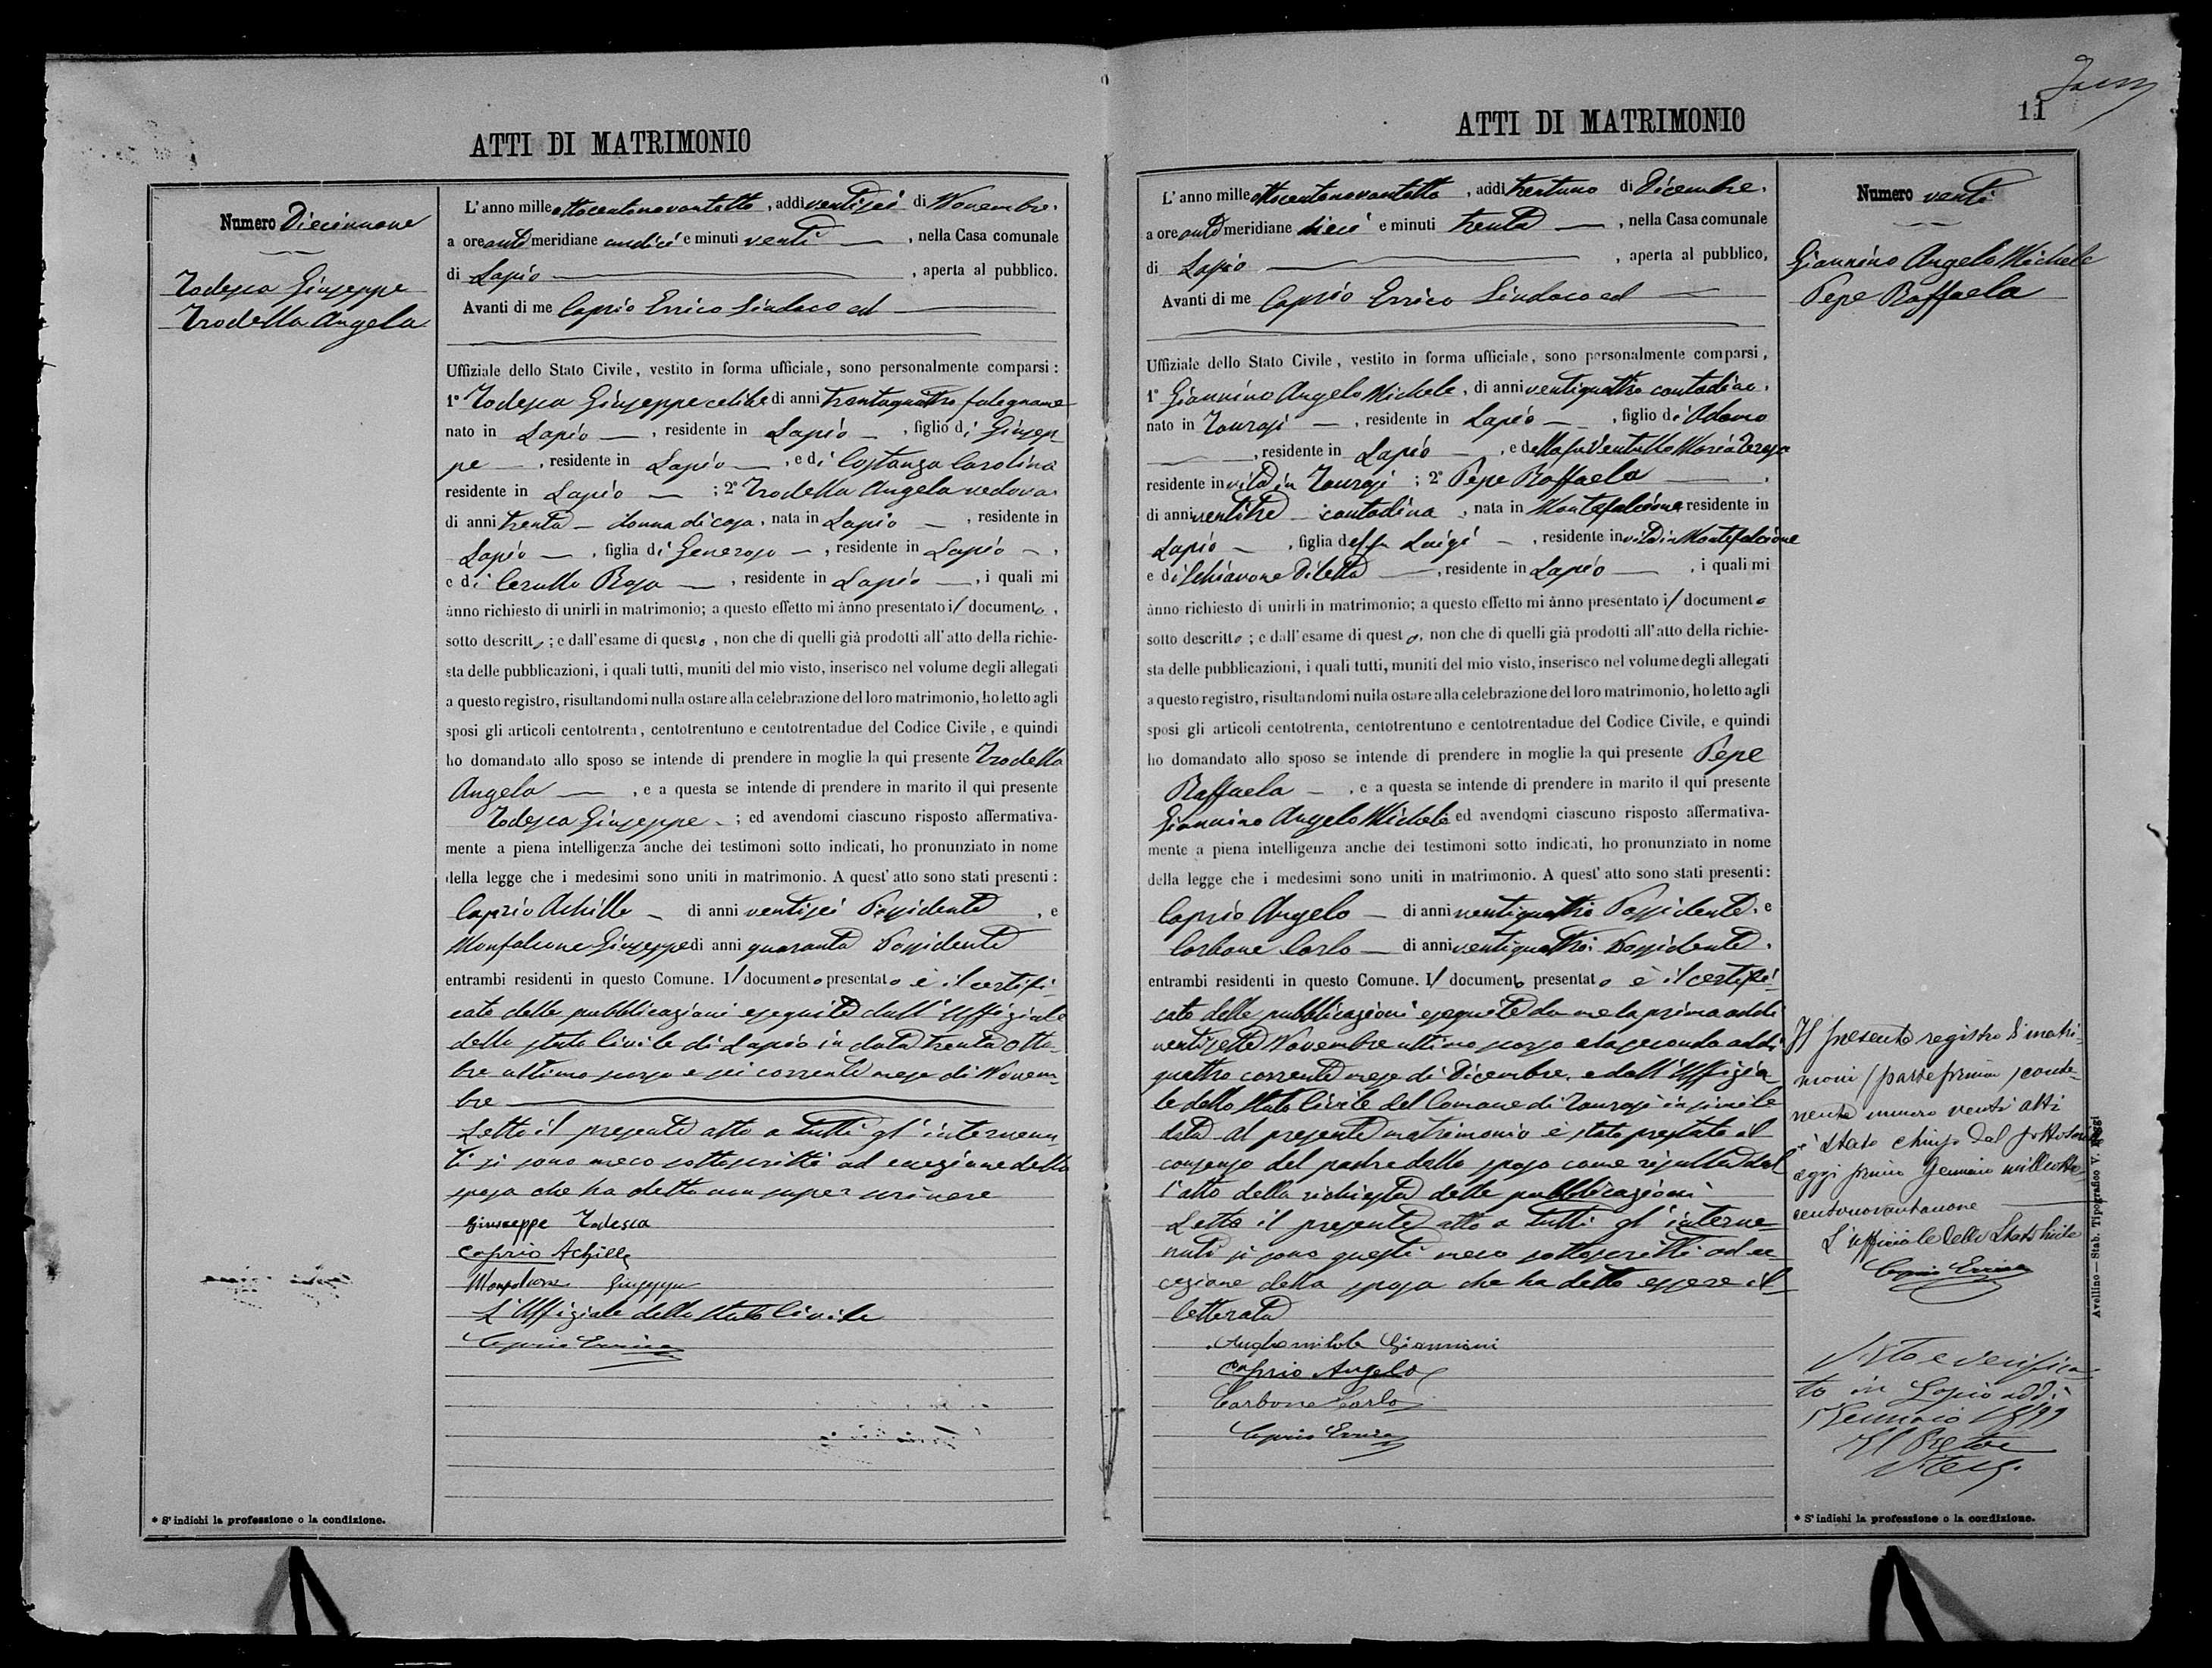 ATTI DI MATRIMONIO
Numero Diecinnove
Todesca Giuseppe
Trodella Angela
L'anno mille ottocentonovantotto, addì ventisei di Novembre,
a ore anti meridiane undici e minuti venti, nella Casa comunale
di Lapio, aperta al pubblico.
Avanti di me Caprio Errico Sindaco ed
Uffiziale dello Stato Civile, vestito in forma ufficiale, sono personalmente comparsi:
1° Todesca Giuseppe celibe di anni trentaquattro falegname
nato in Lapio, residente in Lapio, figlio di Giusep
pe, residente in Lapio, e di Costanza Carolina
residente in Lapio; 2° Trodella Angela vedova
di anni trenta donna di casa, nata in Lapio, residente in
Lapio, figlia di Generoso, residente in Lapio,
e di Cerullo Rosa, residente in Lapio, i quali mi
ànno richiesto di unirli in matrimonio; a questo effetto mi ànno presentato il documento,
sotto descritto; e dall'esame di questo, non che di quelli già prodotti all'atto della richie-
sta delle pubblicazioni, i quali tutti, muniti del mio visto, inserisco nel volume degli allegati
a questo registro, risultandomi nulla ostare alla celebrazione del loro matrimonio, ho letto agli
sposi gli articoli centotrenta, centotrentuno e centotrentadue del Codice Civile, e quindi
ho domandato allo sposo se intende di prendere in moglie la qui presente Trodella
Angela, e a questa se intende di prendere in marito il qui presente
Todesca Giuseppe; ed avendomi ciascuno risposto affermativa-
mente a piena intelligenza anche dei testimoni sotto indicati, ho pronunziato in nome
della legge che i medesimi sono uniti in matrimonio. A quest'atto sono stati presenti:
Caprio Achille di anni ventisei Possidente, e
Monfalcone Giuseppe di anni quaranta Possidente
entrambi residenti in questo Comune. Il documento presentato è il certifi-
cato delle pubblicazioni eseguite dall'Uffiziale
dello stato Civile di Lapio in data trenta Otto-
bre ultimo scorso e sei corrente mese di Novem-
bre
Letto il presente atto a tutti gl'intervenu-
ti si sono meco sottoscritti ad eccezione della
sposa che ha detto non saper scrivere
Giuseppe Todesca
Caprio Achille
Monfalcone Giuseppe
L'Uffiziale dello Stato Civile
Caprio Errico
* S'indichi la professione o la condizione.
ATTI DI MATRIMONIO
11
L'anno mille ottocentonovantotto, addì trentuno di Dicembre,
a ore anti meridiane dieci e minuti trenta, nella Casa comunale
di Lapio, aperta al pubblico,
Avanti di me Caprio Errico Sindaco ed
Uffiziale dello Stato Civile, vestito in forma ufficiale, sono personalmente comparsi,
1° Giannino Angelo Michele, di anni ventiquattro contadino,
nato in Taurasi, residente in Lapio, figlio di Adamo
, residente in Lapio, e della fu Ventullo Maria Teresa
residente in vita in Taurasi; 2° Pepe Raffaela,
di anni ventitre contadina, nata in Montefalcione residente in
Lapio, figlia del fu Luigi, residente in vita in Montefalcione
e di Schiavone Diletta, residente in Lapio, i quali mi
ànno richiesto di unirli in matrimonio; a questo effetto mi ànno presentato il documento
sotto descritto; e dall'esame di questo, non che di quelli già prodotti all'atto della richie-
sta delle pubblicazioni, i quali tutti, muniti del mio visto, inserisco nel volume degli allegati
a questo registro, risultandomi nulla ostare alla celebrazione del loro matrimonio, ho letto agli
sposi gli articoli centotrenta, centotrentuno e centotrentadue del Codice Civile, e quindi
ho domandato allo sposo se intende di prendere in moglie la qui presente Pepe
Raffaela, e a questa se intende di prendere in marito il qui presente
Giannino Angelo Michele ed avendomi ciascuno risposto affermativa-
mente a piena intelligenza anche dei testimoni sotto indicati, ho pronunziato in nome
della legge che i medesimi sono uniti in matrimonio. A quest'atto sono stati presenti:
Caprio Angelo di anni ventiquattro Possidente, e
Carbone Carlo di anni ventiquattro Possidente,
entrambi residenti in questo Comune. Il documento presentato è il certifi-
cato delle pubblicazioni eseguite da me la prima addì
ventisette Novembre ultimo scorso e la seconda addì
quattro corrente mese di Dicembre, e dall'Uffizia-
le dello Stato Civile del Comune di Taurasi in simile
data. Al presente matrimonio è stato prestato il
consenso del padre dello sposo come risulta dal
l'atto della richiesta delle pubblicazioni
Letto il presente atto a tutti gl'interve-
nuti si sono questi meco sottoscritti ad ec-
cezione della sposa che ha detto essere il-
letterata
Angelo michele Giannini
Caprio Angelo
Carbone Carlo
Caprio Errico
Numero venti
Giannino Angelo Michele
Pepe Raffaela
Il presente registro di matri-
moni (parte prima) conte-
nente numero venti atti
è stato chiuso dal sottoscritto
oggi primo Gennaio milleotto-
centonovantanove
L'ufficiale dello Stato Civile
Caprio Errico
Visto e verifica-
to in Lapio addì
Gennaio 1899
Il Pretore
* S'indichi la professione o la condizione.
Avellino — Stab. Tipografico V. Maggi